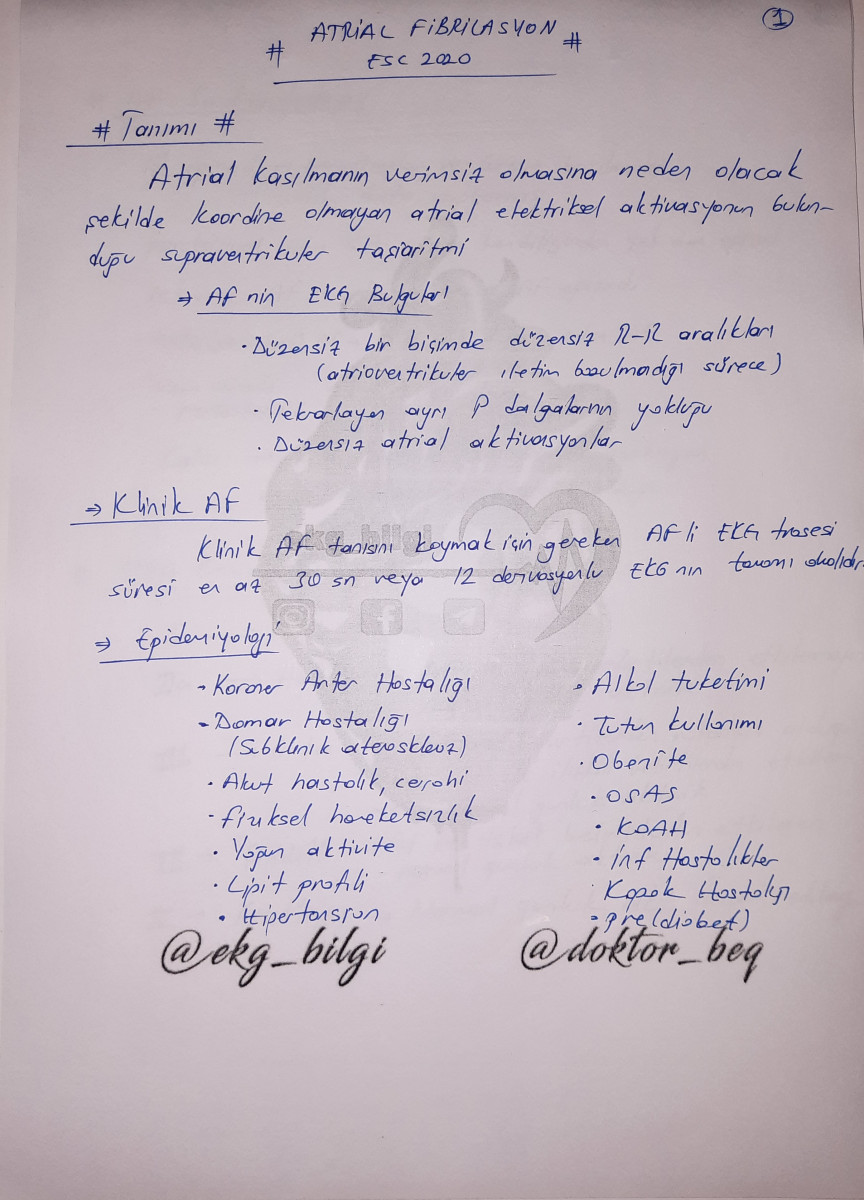 1
# ATRİAL FİBRİLASYON #
ESC 2020
# Tanımı #
Atrial kasılmanın verimsiz olmasına neden olacak
şekilde koordine olmayan atrial elektriksel aktivasyonun bulun-
duğu supraventriküler taşiaritmi
→ AF nin EKG Bulguları
· Düzensiz bir biçimde düzensiz R-R aralıkları
(atrioventriküler iletim bozulmadığı sürece)
· Tekrarlayan ayrı P dalgalarının yokluğu
· Düzensiz atrial aktivasyonlar
→ Klinik AF
ekg_bilgi
Klinik AF tanısını koymak için gereken AF li EKG trasesi
süresi en az 30 sn veya 12 derivasyonlu EKG nin tamamı olmalıdır.
→ Epidemiyoloji
- Koroner Arter Hastalığı
- Damar Hastalığı
(Subklinik ateroskleroz)
· Akut hastalık, cerrahi
- fiziksel hareketsizlik
· Yoğun aktivite
· Lipit profili
· Hipertansiyon
· Alkol tüketimi
· Tütün kullanımı
· Obezite
· OSAS
· KOAH
· inf Hastalıklar
Kapak Hastalığı
· pre(diabet)
@ekg_bilgi
@doktor_beq